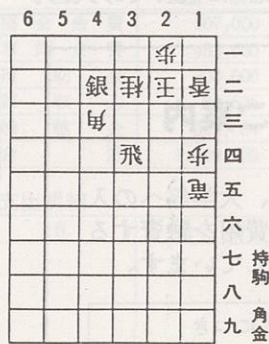 6 5 4 3 2 1
歩 一
銀 桂 王 香 二
角 三
飛 歩 四
竜 五
六
七
八
九
持駒 角金